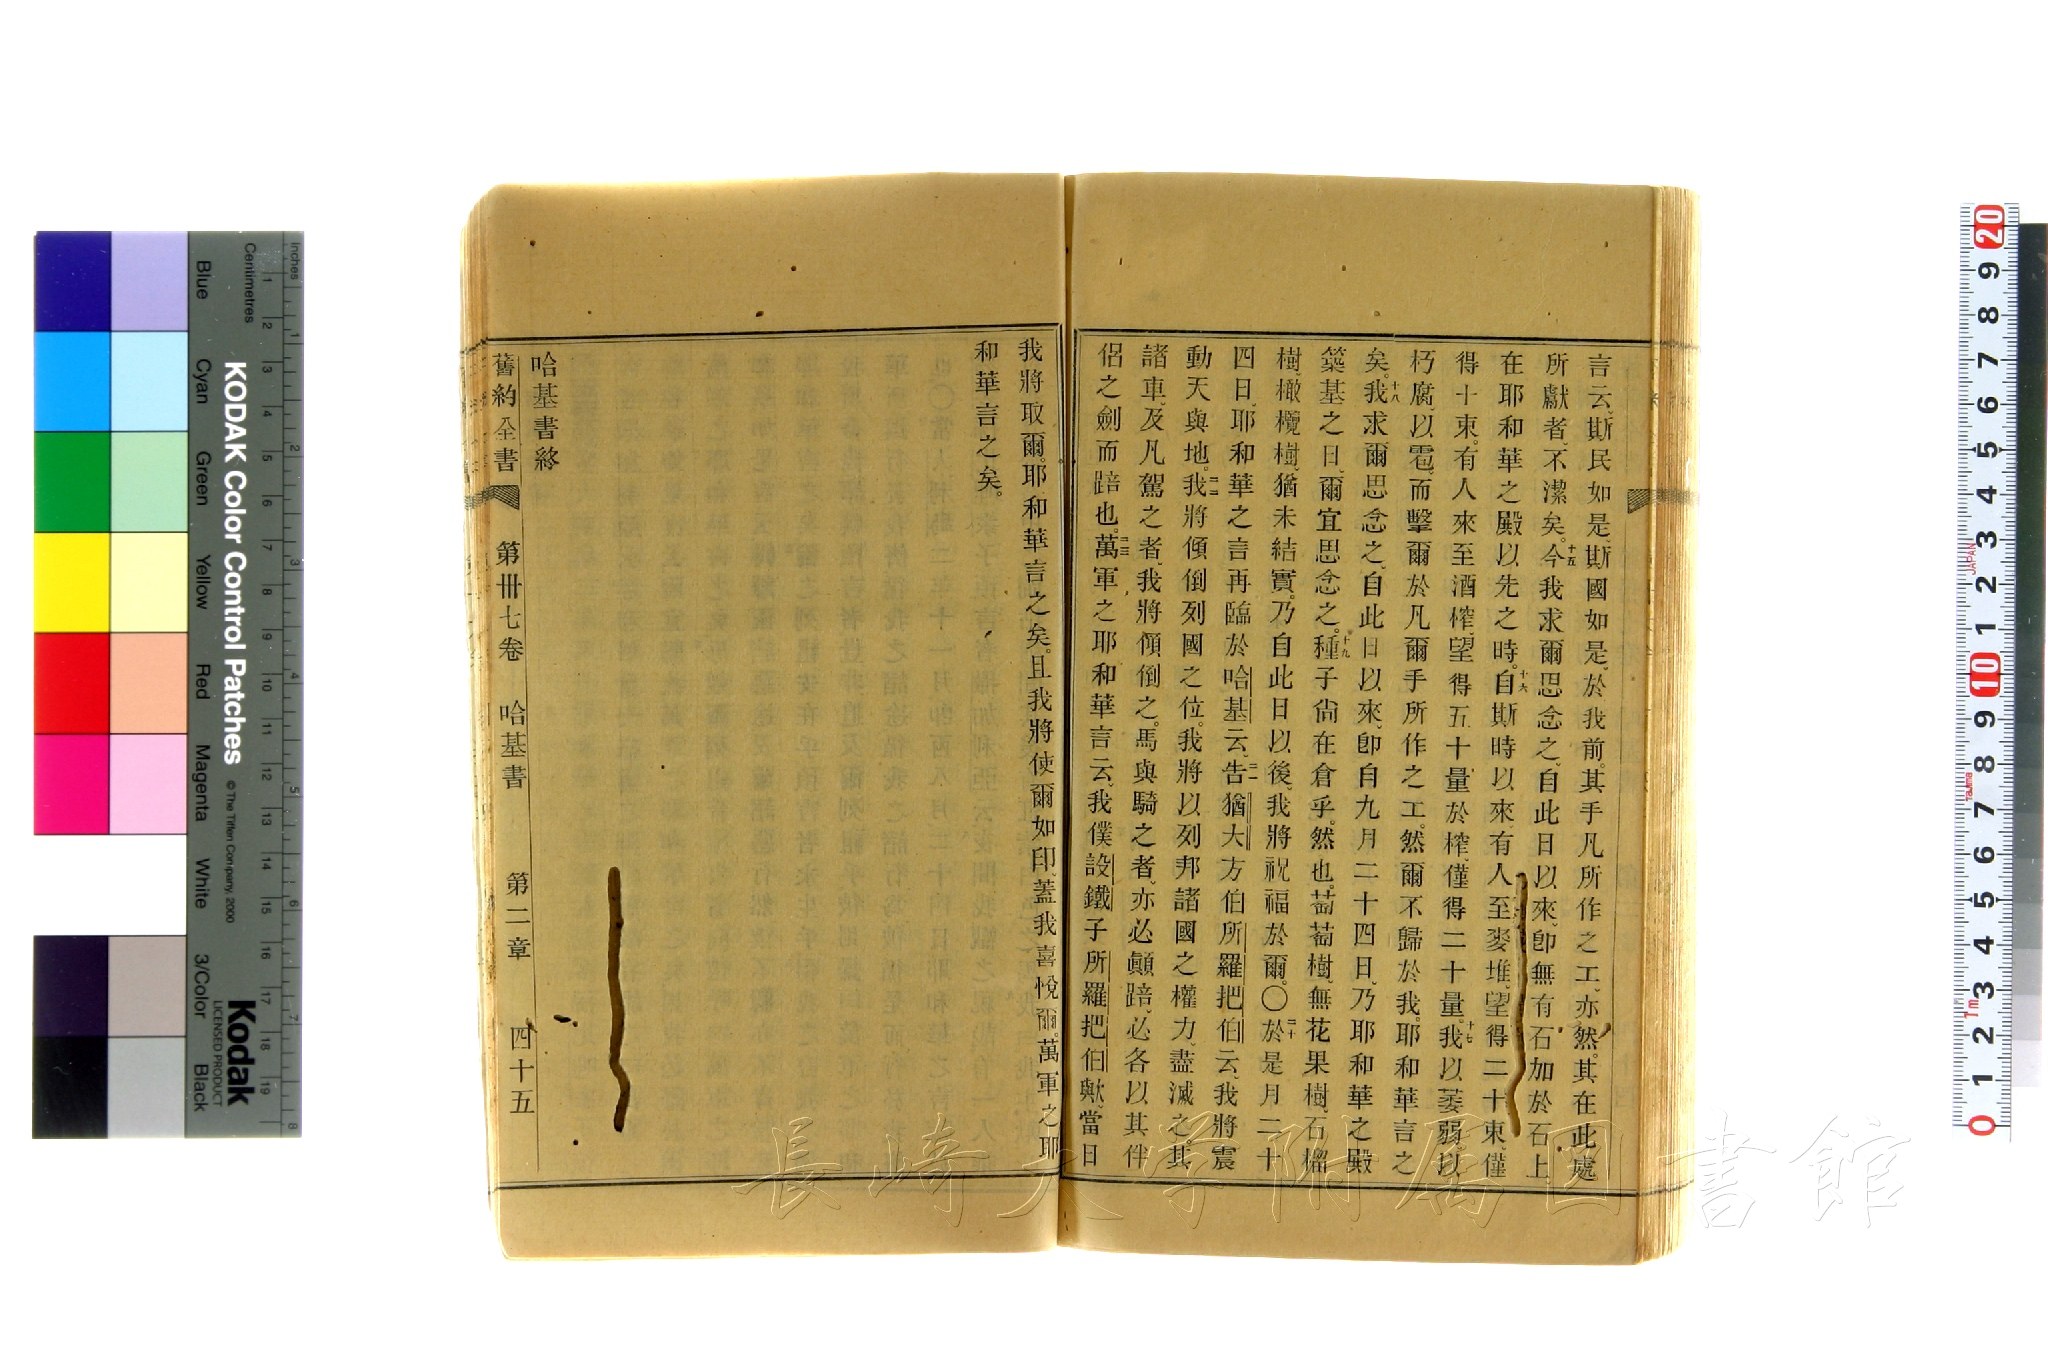 言云、斯民如是、斯國如是、於我前。其手凡所作之工、亦然。其在此處
所獻者、不潔矣。十五今我求爾思念之、自此日以來、卽無有石加於石上
在耶和華之殿以先之時。十六自斯時以來、有人至麥堆、望得二十束、僅
得十束。有人來至酒榨、望得五十量於榨、僅得二十量。十七我以萎弱、以
朽腐、以雹、而擊爾於凡爾手所作之工。然爾不歸於我。耶和華言之
矣。十八我求爾思念之、自此日以來、卽自九月二十四日、乃耶和華之殿
築基之日、爾宜思念之。十九種子尙在倉乎。然也。萄萄樹、無花果樹、石榴
樹、橄欖樹、猶未結實。乃自此日以後、我將祝福於爾。〇二十於是月二十
四日、耶和華之言再臨於哈基云、二一告猶大方伯所羅把伯云、我將震
動天與地。二二我將傾倒列國之位。我將以列邦諸國之權力、盡滅之。其
諸車、及凡駕之者、我將傾倒之。馬與騎之者、亦必顚踣、必各以其伴
侶之劍而踣也。二三萬軍之耶和華言云、我僕設鐵子所羅把伯歟、當日
我將取爾。耶和華言之矣。且我將使爾如印、蓋我喜悅爾。萬軍之耶
和華言之矣。
哈基書終
舊約全書 第卅七卷 哈基書 第二章 四十五
長崎大学附属図書館
KODAK Color Control Patches
© The Tiffen Company, 2000
Kodak
LICENSED PRODUCT
Inches
Centimetres
Blue
Cyan
Green
Yellow
Red
Magenta
White
3/Color
Black
1 2 3 4 5 6 7 8 9 10 11 12 13 14 15 16 17 18 19
1 2 3 4 5 6 7 8
20 9 8 7 6 5 4 3 2 1 10 9 8 7 6 5 4 3 2 1 0
JAPAN
Tajima